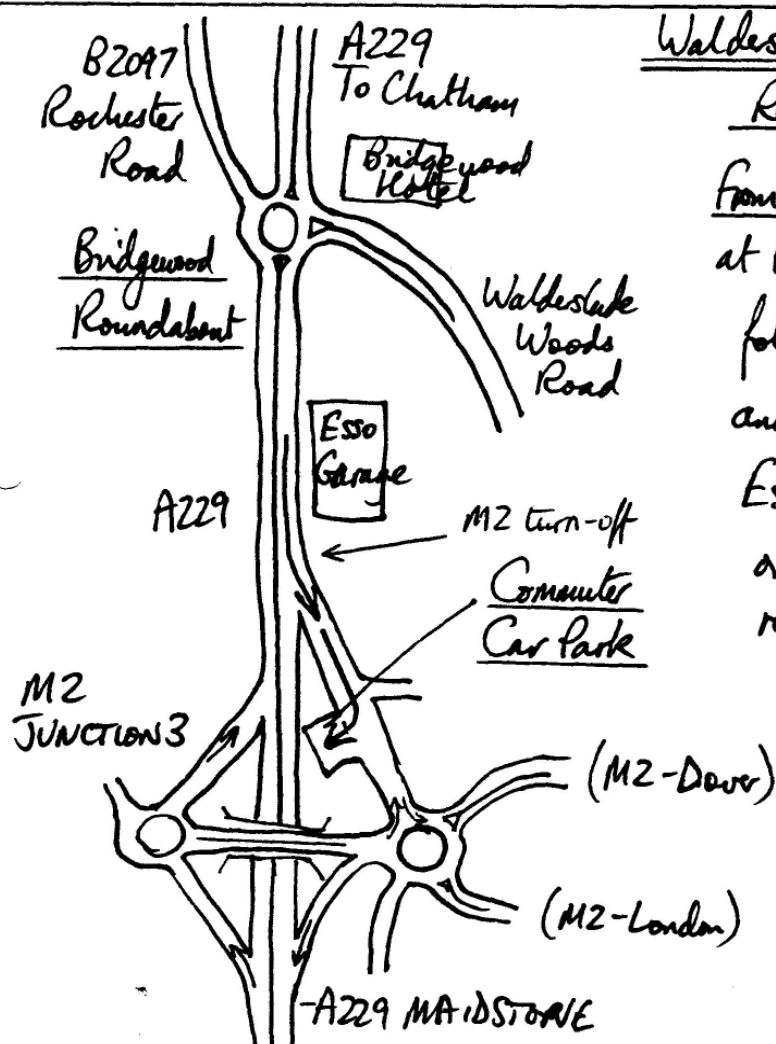 B2097
Rochester
Road
A229
To Chatham
Bridgewood
Hotel
Bridgewood
Roundabout
Walderslade
Woods
Road
Esso
Garage
A229
M2 turn-off
Commuter
Car Park
M2
JUNCTION 3
(M2-Dover)
(M2-London)
A229 MAIDSTONE
From
at
Es